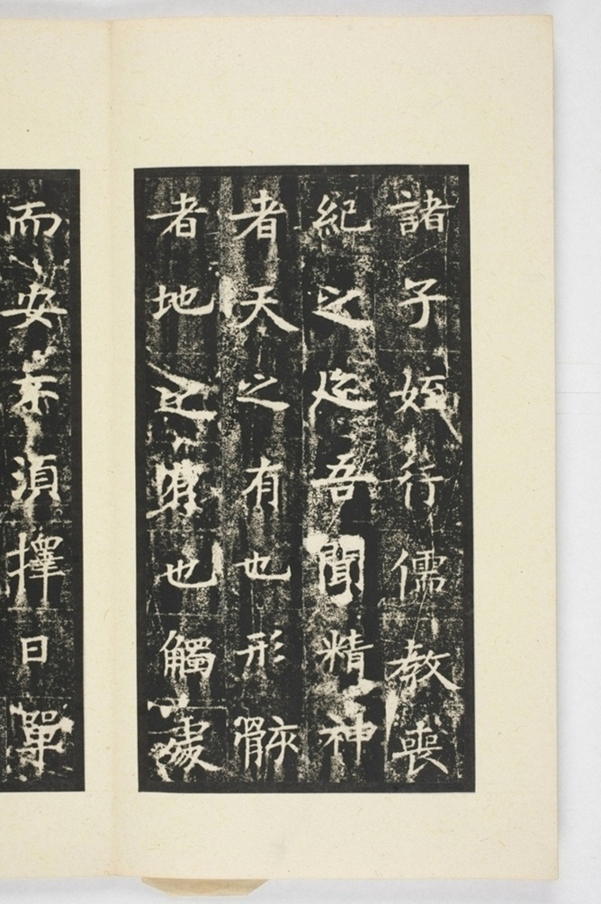 諸子姪行儒教喪
紀之吾聞精神
者天之有也形骸
者地之有也觸處
而安不須擇日單